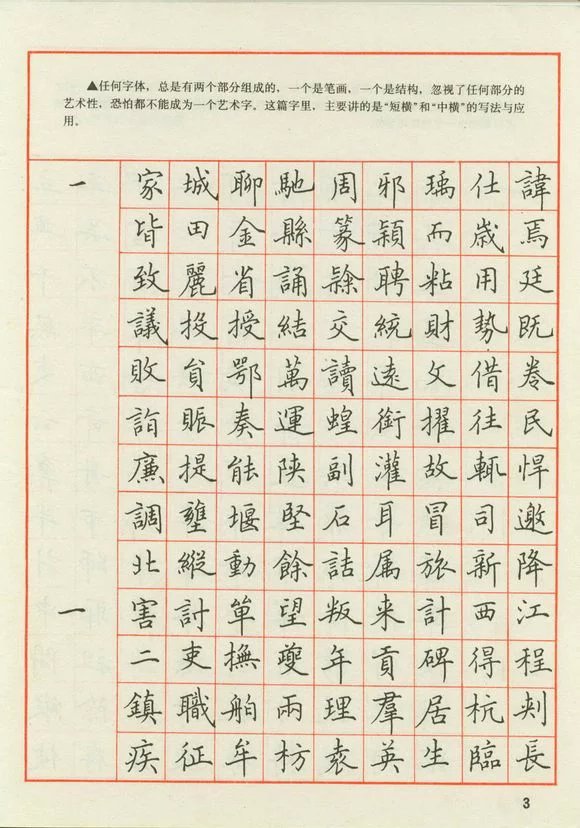 ▲任何字体，总是有两个部分组成的，一个是笔画，一个是结构，忽视了任何部分的
艺术性，恐怕都不能成为一个艺术字。这篇字里，主要讲的是“短横”和“中横”的写法与应
用。
一 家城聊馳周邪瑀仕諱
皆田金縣篆穎而歳焉
致麗省誦聘粘用廷
議投授結交統財勢既
敗貟鄂萬讀遠文借卷
詣賑奏運蝗銜擢往民
廉提能陕副灌故輒悍
調壅堰堅石耳冒司邀
北縱動餘詁属旅新降
一 害計單望叛来計西江
二吏撫夔年貢碑得程
鎮職舶兩理羣居杭刺
疾征牟枋袁英生臨長
3